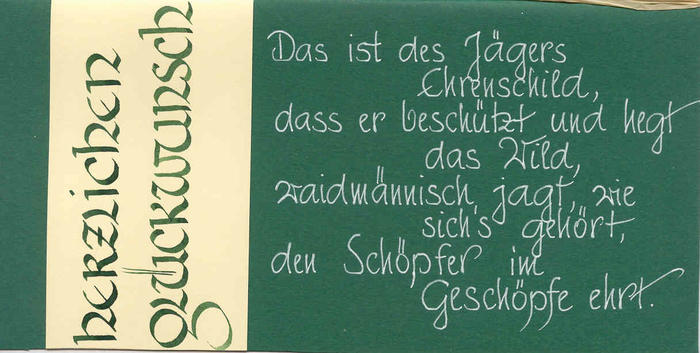 herzlichen
glückwunsch
Das ist des Jägers
Ehrenschild,
dass er beschützt und hegt
das Wild,
waidmännisch jagt, wie
sich's gehört,
den Schöpfer im
Geschöpfe ehrt.